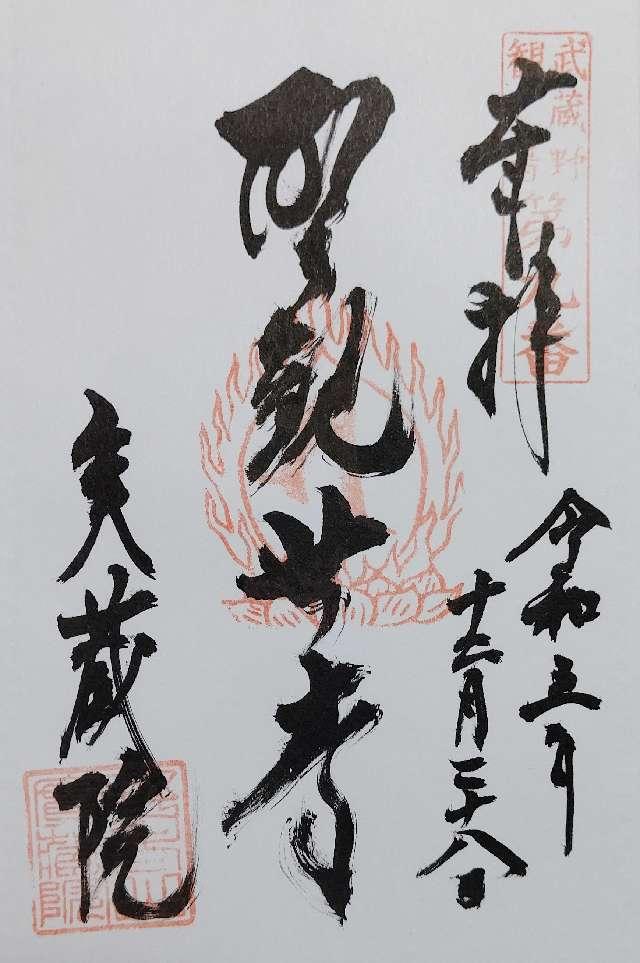 武蔵野
観音
第九番
奉拝
令和五年
十二月二十八日
聖観世音
実蔵院